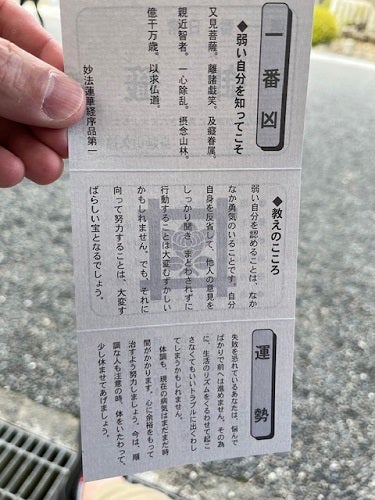 一番凶
◆弱い自分を知ってこそ
又見菩薩。離諸戯笑。及癡眷属。
親近智者。一心除乱。摂念山林。
億千万歳。以求仏道。
妙法蓮華経序品第一
◆教えのこころ
弱い自分を認めることは、なか
なか勇気のいることです。自分
自身を反省して、他人の意見を
しっかり聞き、まどわされずに
行動することは大変むずかしい
かもしれません。でも、それに
向って努力することは、大変す
ばらしい宝となるでしょう。
運勢
失敗を恐れているあなたは、悩んで
ばかりで前へは進めません。その為
に、生活のリズムをくるわせて起こ
さなくてもいいトラブルに出くわし
てしまうかもしれません。
体調も、現在の病気はまだまだ時
間がかかります。心に余裕をもって
治すよう努力しましょう。今は、順
調な人も注意の時、体をいたわって、
少し休ませてあげましょう。